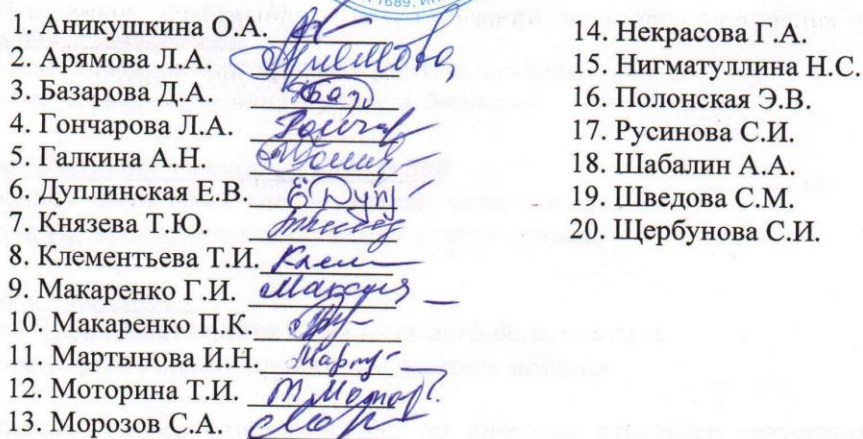 1. Аникушкина О.А.
2. Арямова Л.А.
3. Базарова Д.А.
4. Гончарова Л.А.
5. Галкина А.Н.
6. Дуплинская Е.В.
7. Князева Т.Ю.
8. Клементьева Т.И.
9. Макаренко Г.И.
10. Макаренко П.К.
11. Мартынова И.Н.
12. Моторина Т.И.
13. Морозов С.А.
14. Некрасова Г.А.
15. Нигматуллина Н.С.
16. Полонская Э.В.
17. Русинова С.И.
18. Шабалин А.А.
19. Шведова С.М.
20. Щербунова С.И.